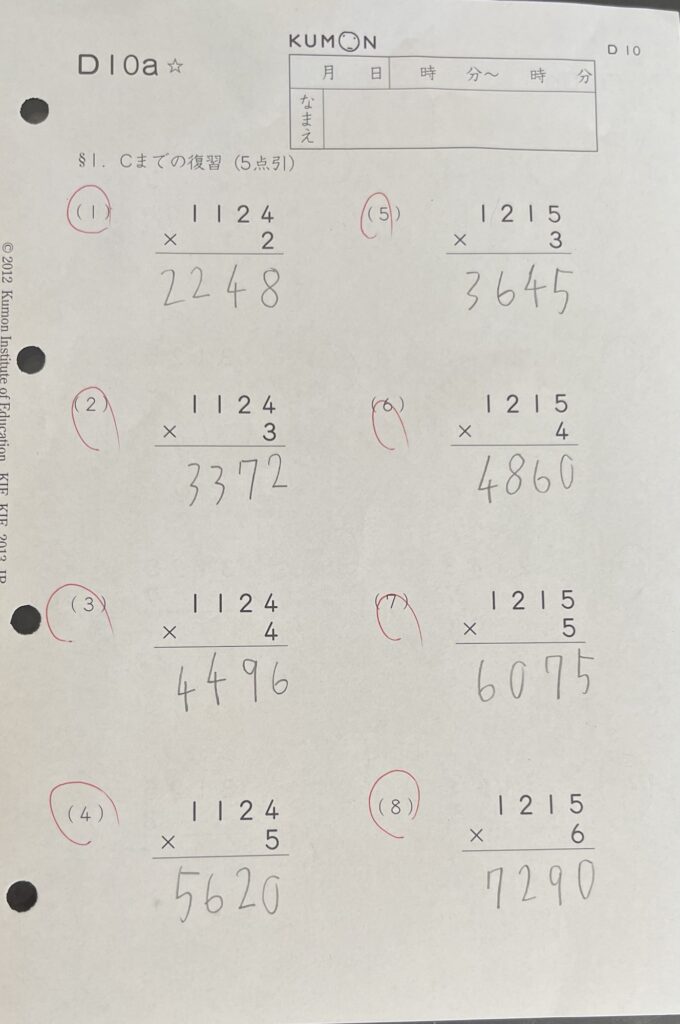 KUMON
D10a☆
D 10
月 日 時 分～ 時 分
なまえ
§1. Cまでの復習 (5点引)
(1)
1124
× 2
2248
(2)
1124
× 3
3372
(3)
1124
× 4
4496
(4)
1124
× 5
5620
(5)
1215
× 3
3645
(6)
1215
× 4
4860
(7)
1215
× 5
6075
(8)
1215
× 6
7290
© 2012 Kumon Institute of Education KIE KIE 2013 JP